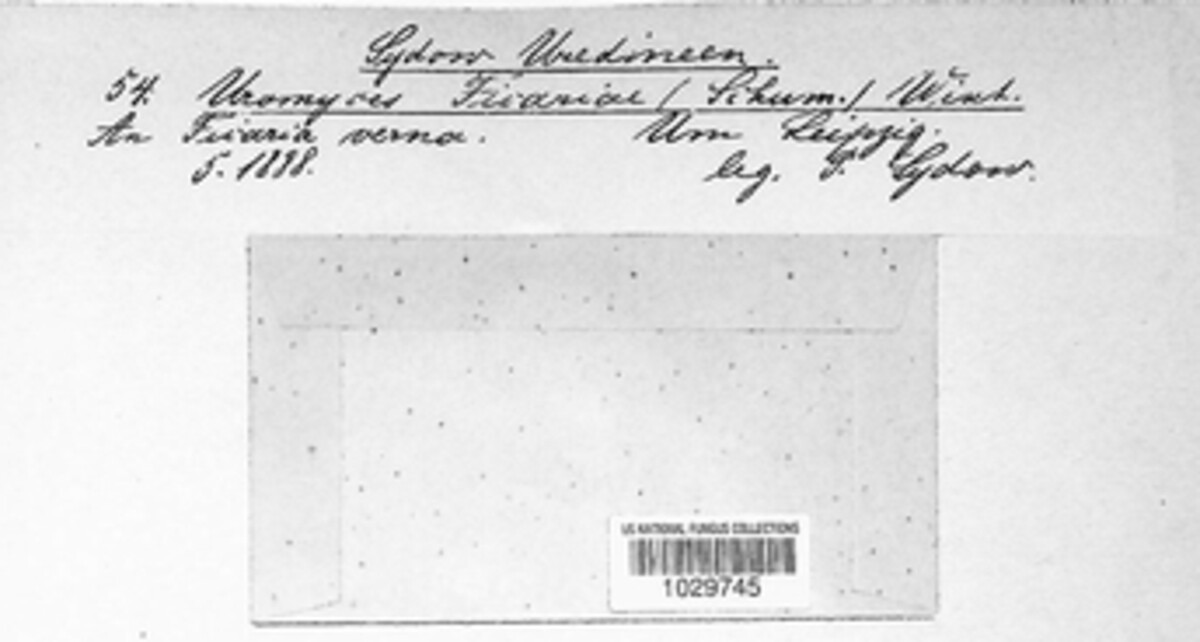 Sydow Uredineen.
54. Uromyces Ficariae (Schum.) Wint.
An Ficaria verna. Um Leipzig.
5. 1888. leg. P. Sydow.
US NATIONAL FUNGUS COLLECTIONS
1029745